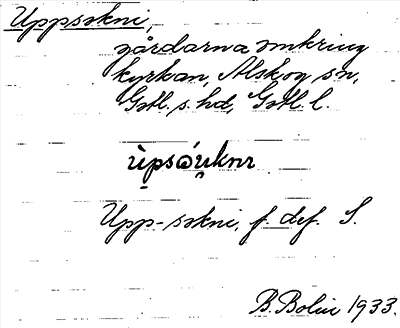 Uppsokni,
gårdarna omkring
kyrkan, Alskog sn,
Gotl. s. hd, Gotl. l.
Upp-sokni, f. def. S.
B. Bolin 1933.